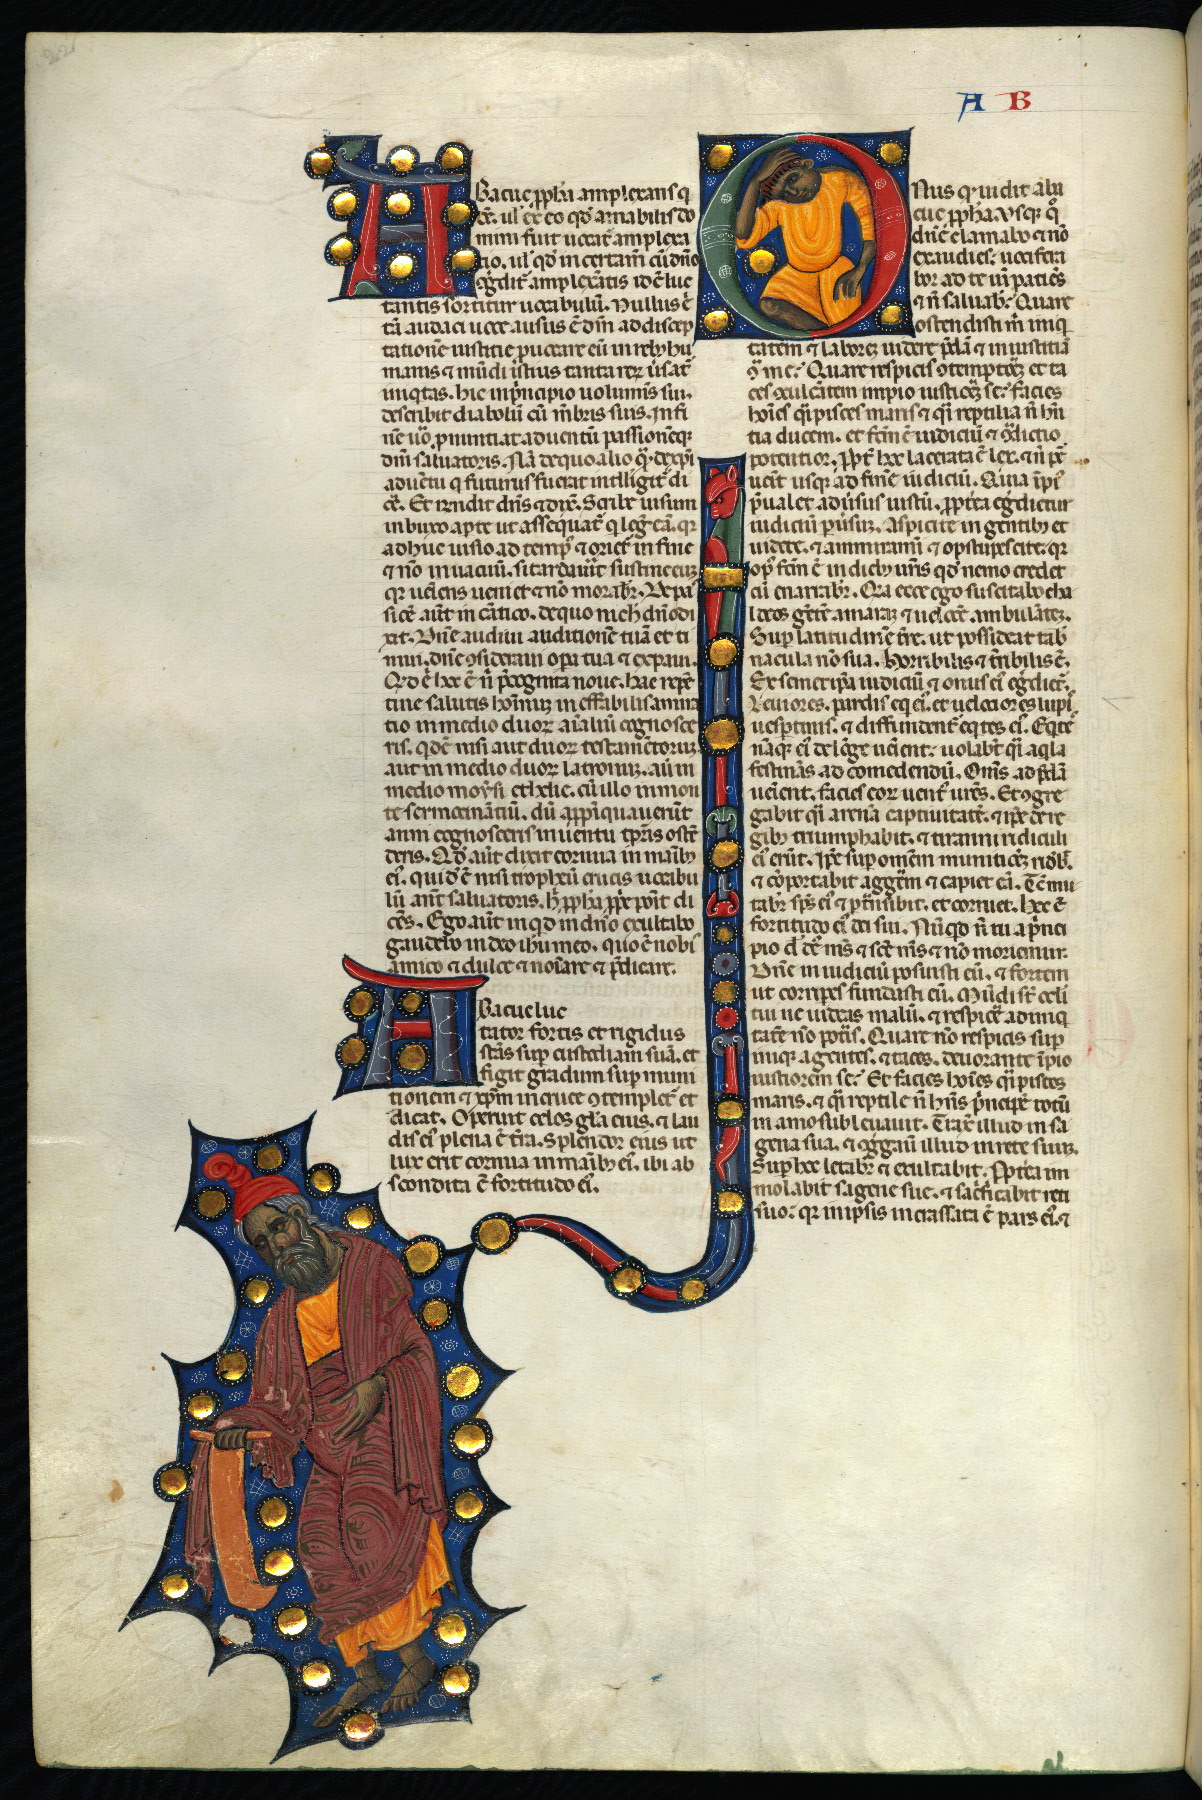 A B
Abacuc ꝓph̄a amplexans q
ēē. ul' ex eo qđ amabilis do
mini fuit uocat̄ amplexa
tio. ul' qđ in certam̄ cū dn̄o
eḡdit̄ amplexātis id ē luc
tantis sortitur uocabulū. Nullus ē
tā audaci uoce ausus ē dm̄ ad discep
tationē iustitie ꝓuocare
manis ⁊ mūdi istius tanta rerꝫ
iniq̇tas. hic in p̄ncipio uoluminis sui.
describit diabolū cū mēbris suis. In fi
ne uo ꝓnuntiat aduentū passionēqꝫ
dn̄i saluatoris. Nā de quo alio
aduētu q futurus fuerat intelligit̄ di
cē. Et rn̄dit dn̄s ⁊ dix̄. Scribe uisum
in buxo ap̄te ut assequat̄ q leḡ eā. qr
adhuc uisio ad temp⁹ ⁊ oriet̄ in fine
⁊ nō in uacuū. si tardauīt sustine eūꝫ
qr ueīens ueniet ⁊ nō morabr̄.
sicē aūt in cātico. de quo
xit. Dn̄e audiui auditionē tuā et ti
mui. dn̄e ꝯsideraui oꝑa tua ⁊ expaui.
Qđ ē hec ē n̄ p̄cognita noue. hac repē
tine salutis hoīmꝫ ineffabilis amira
tio in medio duorꝫ aīaliū cognosce
ris. qđ ē nisi aut duorꝫ testamētorꝫ
aut in medio duorꝫ latronuꝫ. aūt in
medio moysi et helie. cū illo in mon
te sermocinātiū. dū app̄pinquauerint
anni cognosceris in uentu tēpris ostē
deris. Qđ aūt dixit cornua in manibꝫ
ei⁹. quid ē nisi tropheū crucis uocabu
lū aūt saluatoris. ꝓph̄a ponit di
cēs. Ego aūt inqđ in dn̄o exultabo
gaudebo in deo ih̄u meo. quo ē nobis
amico ⁊ dulce ⁊ noīare ⁊ p̄dicare.
Abacuc luc
tator fortis et rigidus
stās sup custodiam suā. et
figit gradum sup muni
tionem ⁊ xp̄m in cruce ꝯtemplet̄ et
dicat. Operuit celos glā eius. ⁊ lau
dis ei⁹ plena ē tr̄a. Splendor eius ut
lux erit cornua in manibꝫ ei⁹. ibi ab
scondita ē fortitudo ei⁹.
Onus qđ uidit aba
cuc ꝓph̄a. Vsqꝫ q̊
dn̄e clamabo ⁊ nō
exaudies: uocifera
bor ad te uim patiēs
⁊ n̄ saluab̄: Quare
ostendisti m̄ iniq̇
tatem ⁊ laborē uidere p̄dā ⁊ iniustitiā
ꝯ me: Quare respicis ꝯtemptores et ta
ces ꝯculcātem impio iustiorem se: facies
hoīes q̄i pisces maris ⁊ q̄i reptilia n̄ hn̄
tia ducem. et fcm̄ ē iudiciū ⁊ ꝯdictio
potentior. ꝓpt̄ hoc lacerata ē lex. ⁊ n̄ ꝑ
uenit usqꝫ ad finē iudiciū. Quia īpi⁹
p̄ualet aduīsus iustū. ꝓpt̄ea eg̊dietur
iudiciū ꝑuīsū. Aspicite in gentibꝫ et
uidete. ⁊ ammiramī ⁊ opstupescite. qr
op⁹ fcm̄ ē in diebꝫ ur̄is qđ nemo credet
cū enarrabr̄. Qia ecce ego suscitabo cha
ldeos gētē amarā ⁊ uelocē. ambulātē
sup latitudinē tr̄e. ut possideat tab
nacula nō sua. Horribilis ⁊ tr̄ibilis ē.
Ex semetip̄a iudiciū ⁊ onus ei⁹ eg̊diet̄.
Leuiores pardis eq̇ ei⁹. et uelociores lupi⁹
uesptinis. ⁊ diffundent̄ eq̇tes ei⁹. Eq̇tes
nāqꝫ ei⁹ de lōge ueīent: uolabūt q̄i aq̇la
festinās ad comedendū. Om̄s ad p̄dā
ueīent. facies eorꝫ uent⁹ urēs. Et ꝯgre
gabit q̄i arenā captiuitatē. ⁊ ip̄e de re
gibꝫ triumphabit. ⁊ tiranni ridiculi
ei⁹ erūt. Ip̄e sup omēm munitioē ridēbit
⁊ cōportabit agḡem ⁊ capiet eā. Tc̄ mu
tabr̄ sp̄s ei⁹ ⁊ ꝑtn̄sibit. et corruet. hec ē
fortitudo ei⁹ dei sui. Nūqđ n̄ tu a p̄nci
pio dn̄e de⁹ m̄s ⁊ sc̄e m̄s ⁊ nō moriemur.
Dn̄e in iudiciū posuisti eū. ⁊ fortem
ut corriꝑes fundasti eū. Mūdi st̄ oculi
tui ne uideas malū. ⁊ respicē ad iniq̇
tatē nō pot̄is. Quare nō respicis sup
iniqꝫ agentes. ⁊ taces. deuorante īpio
iustiorem se: Et facies hoīes q̄i pisces
maris. ⁊ q̄i reptile n̄ hn̄s p̄ncipē totū
in amo subleuauit. Traxit illud in sa
gena sua. ⁊ ꝯgḡauit illud in rete suum.
Sup hoc letabr̄ ⁊ exultabit. ꝓpt̄ea im
molabit sagene sue. ⁊ sac̄ficabit reti
suo: qr in ip̄sis incrassata ē pars ei⁹. ⁊